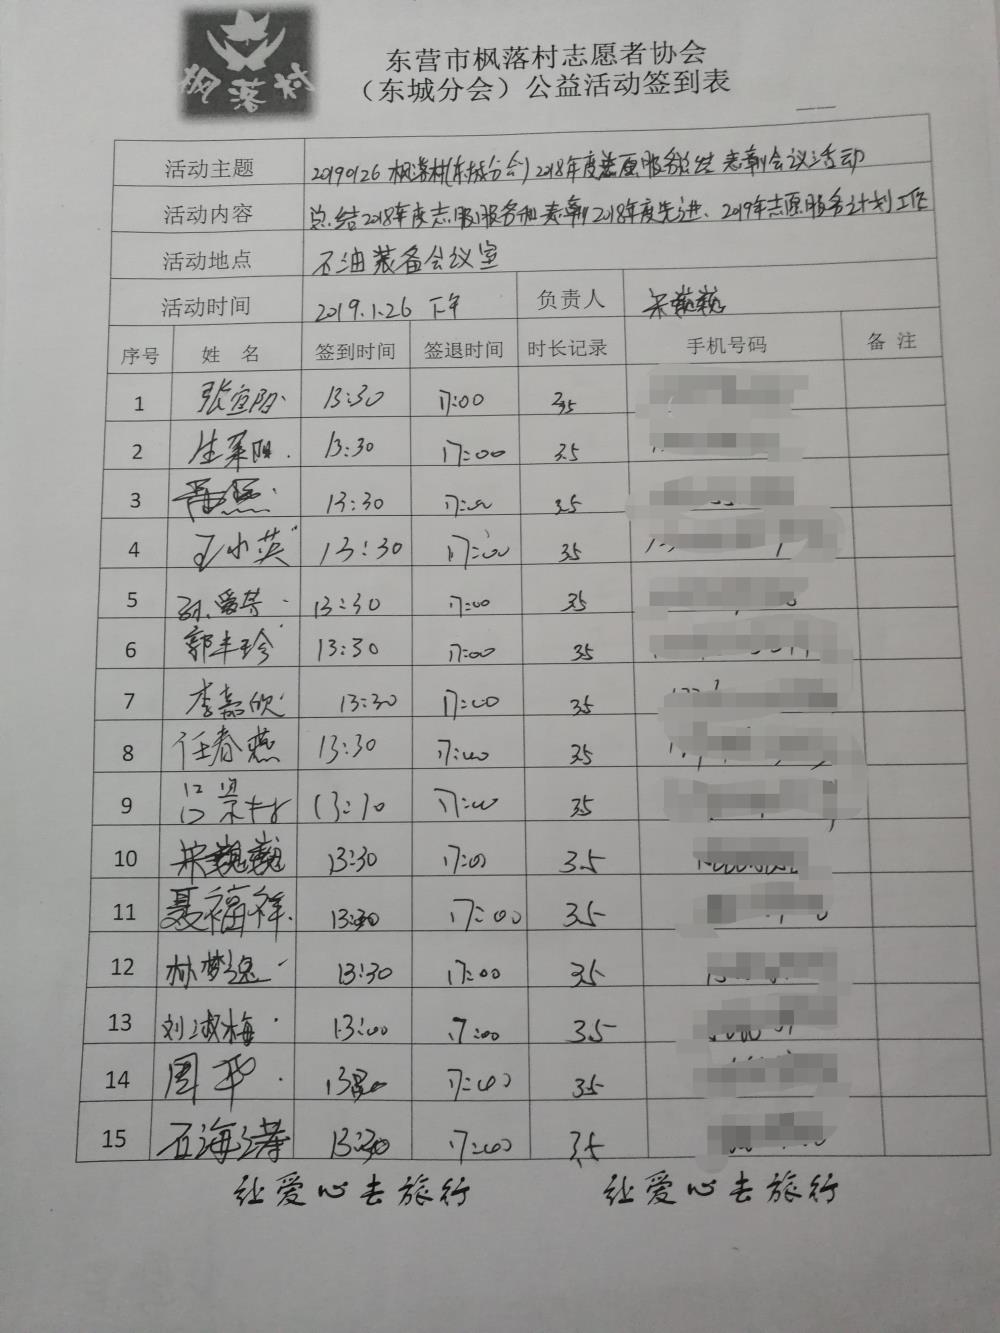 枫落村
东营市枫落村志愿者协会
（东城分会）公益活动签到表
活动主题 20190126 枫落村(东城分会)2018年度志愿服务总结 表彰会议活动
活动内容 总结2018年度志愿服务和表彰2018年度先进、2019年志愿服务计划工作
活动地点 石油装备会议室
活动时间 2019.1.26 下午 负责人 宋巍巍
序号 姓 名 签到时间 签退时间 时长记录 手机号码 备 注
1 张宜阳 13:30 17:00 3.5
2 生莱阳 13:30 17:00 3.5
3 13:30 17:00 3.5
4 王小英 13:30 17:00 3.5
5 孙爱芹 13:30 17:00 3.5
6 郭丰珍 13:30 17:00 3.5
7 李嘉欣 13:30 17:00 3.5
8 任春燕 13:30 17:00 3.5
9 17:00 3.5
10 宋巍巍 13:30 17:00 3.5
11 聂福祥 13:30 17:00 3.5
12 林梦逸 13:30 17:00 3.5
13 刘淑梅 13:00 17:00 3.5
14 周平 17:00 3.5
15 石海涛 13:30 17:00 3.5
让爱心去旅行 让爱心去旅行